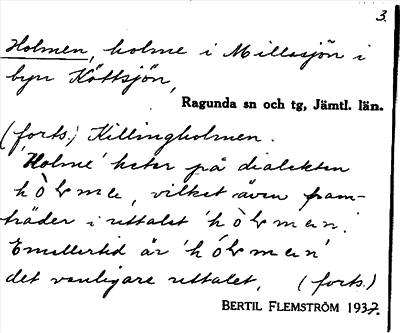 3.
Holmen, holme i Millasjön i
byn Köttsjön,
Ragunda sn och tg, Jämtl. län.
(forts.) Killingholmen.
'Holme' heter på dialekten
vilket även fram-
träder i uttalet
Emellertid är
det vanligare uttalet, (forts.)
BERTIL FLEMSTRÖM 1937.